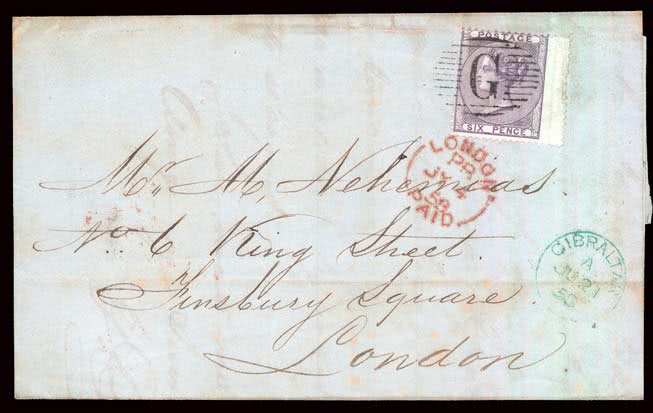 POSTAGE
G
SIX PENCE
LONDON
PR
JY 4
58
PAID
Mr. M, Nehemias.
No 6 King Street.
Finsbury Square.
London
GIBRALTAR
A
JU 21
58